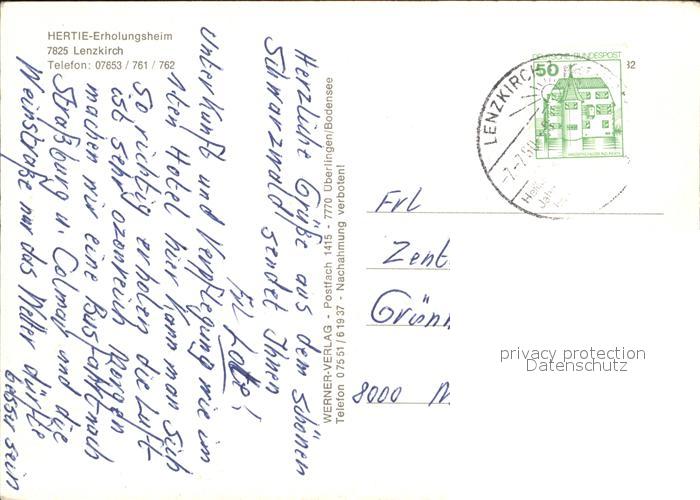 HERTIE-Erholungsheim
7825 Lenzkirch
Telefon: 07653 / 761 / 762
Herzliche Grüße aus dem schönen
Schwarzwald sendet Ihnen
Frl
Unterkunft und Verpflegung wie im
1ten Hotel hier kann man sich
so richtig erholen die Luft
ist sehr ozonreich Morgen
machen wir eine Busfahrt nach
Straßburg u. Colmar und die
Weinstraße nur das Wetter dürfte
besser sein
WERNER-VERLAG - Postfach 1415 - 7770 Überlingen/Bodensee
Telefon 07551/61937 - Nachahmung verboten!
DEUTSCHE BUNDESPOST
50
LENZKIRCH
-7.-7.80
82
Frl
Zent
Grünn
8000 M
privacy protection
Datenschutz